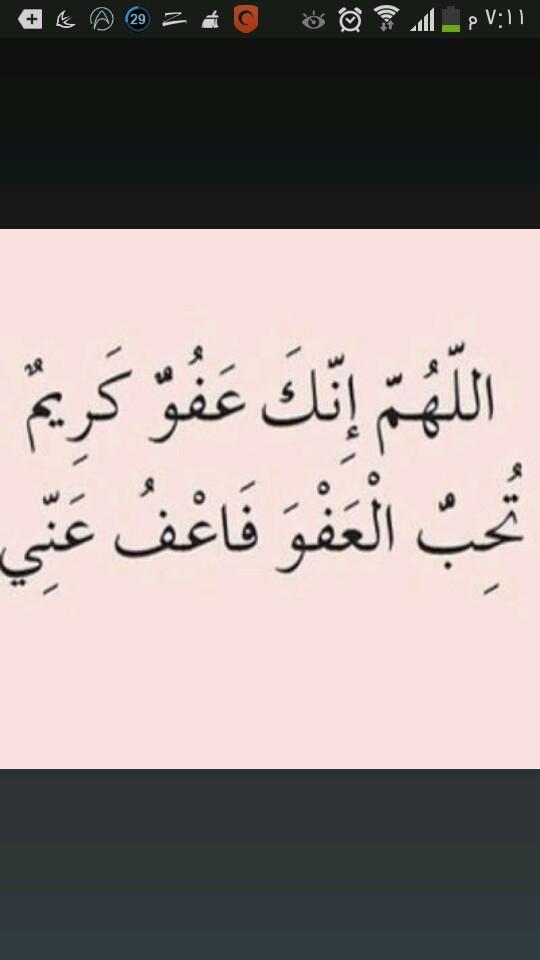 ٧:١١ م
29
اللّهُمّ إِنّكَ عَفُوٌّ كَرِيمٌ
تُحِبٌ الْعَفْوَ فَاعْفُ عَنِّي